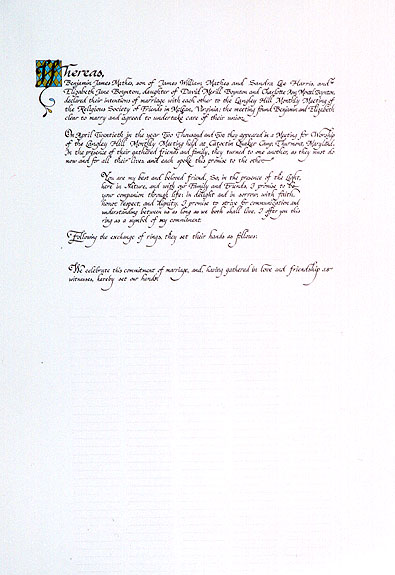 Whereas,
Benjamin James Mathes, son of James William Mathes and Sandra Lee Harris, and
Elizabeth Jane Boynton, daughter of David Merill Boynton and Charlotte Ann Boynton,
declared their intentions of marriage with each other to the Langley Hill Monthly Meeting of
the Religious Society of Friends in McLean, Virginia; the meeting found Benjamin and Elizabeth
clear to marry and agreed to undertake care of their union.
On April Twentieth in the year Two Thousand and Two they appeared in a Meeting for Worship
of the Langley Hill Monthly Meeting held at Catoctin Quaker Camp, Thurmont, Maryland.
In the presence of their gathered friends and family, they turned to one another, as they must do
now and for all their lives and each spoke this promise to the other
You are my best and beloved friend, So, in the presence of the Light,
here in Nature, and with our Family and Friends, I promise to be
your companion through life; in delight and in sorrow with faith,
honor, respect, and dignity. I promise to strive for communication and
understanding between us as long as we both shall live. I offer you this
ring as a symbol of my commitment.
Following the exchange of rings, they set their hands as follows:
We celebrate this commitment of marriage, and, having gathered in love and friendship as
witnesses, hereby set our hands: